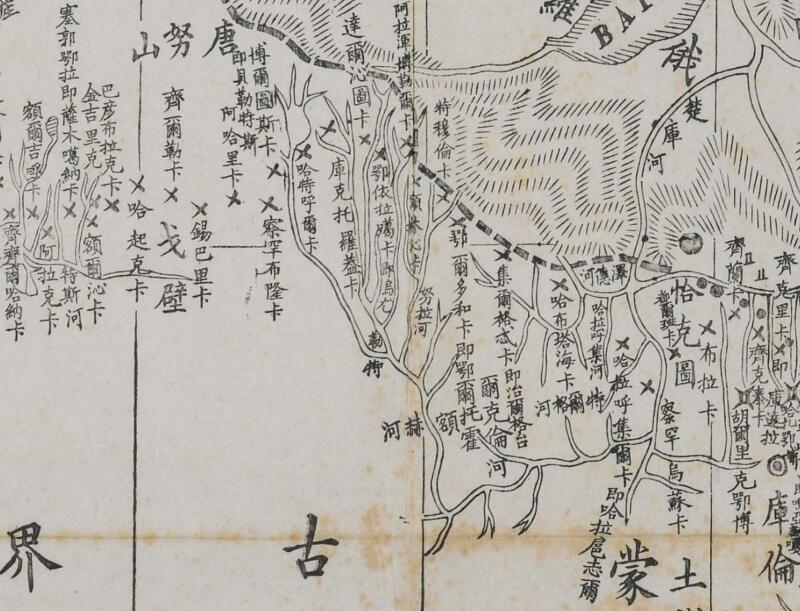 唐努山
達爾沁圖卡
阿拉渾博勒爾卡
BAI
楚庫河
塞郭鄂拉即薩木噶納卡
巴彥布拉克卡
金吉里克卡
額爾吉
齊爾勒卡
博爾圖斯卡
即貝勒特斯
阿哈里卡
哈特呼爾卡
庫克托羅益卡
特穆倫卡
哈起克卡
戈壁
錫巴里卡
察罕布隆卡
額爾沁卡
特斯河
阿拉克卡
齊齊爾哈納卡
努拉河
勒特
鄂爾多和卡即鄂爾托霍
集爾格忒卡即治爾格台
哈布塔海卡
哈拉呼集河
澤德河
恰克圖
布拉卡
齊蘭卡
齊克里卡即
齊克泰卡
庫達拉
胡爾里克鄂博
哈拉呼集爾卡即哈拉扈志爾
察罕烏蘇卡
額赫河
爾克倫河
特爾格河
庫倫
界
古
蒙
土